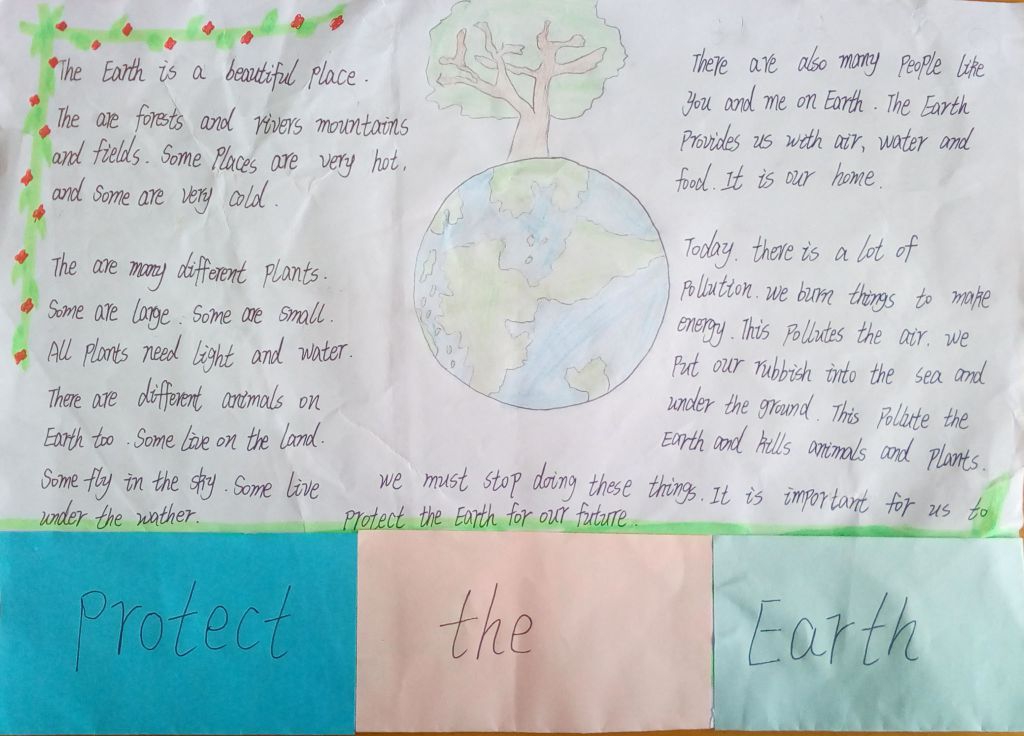 The Earth is a beautiful place.
The are forests and rivers mountains
and fields. Some Places are very hot,
and Some are very cold.
The are many different Plants.
Some are large. Some are small.
All Plants need light and water.
There are different animals on
Earth too. Some live on the land.
Some fly in the sky. Some live
under the wather.
There are also many People like
You and me on Earth. The Earth
Provides us with air, water and
food. It is our home.
Today. there is a lot of
Pollution. we burn things to make
energy. This Pollutes the air. we
Put our rubbish into the sea and
under the ground. This Pollute the
Earth and kills animals and Plants.
we must stop doing these things. It is important for us to
Protect the Earth for our future.
Protect the Earth